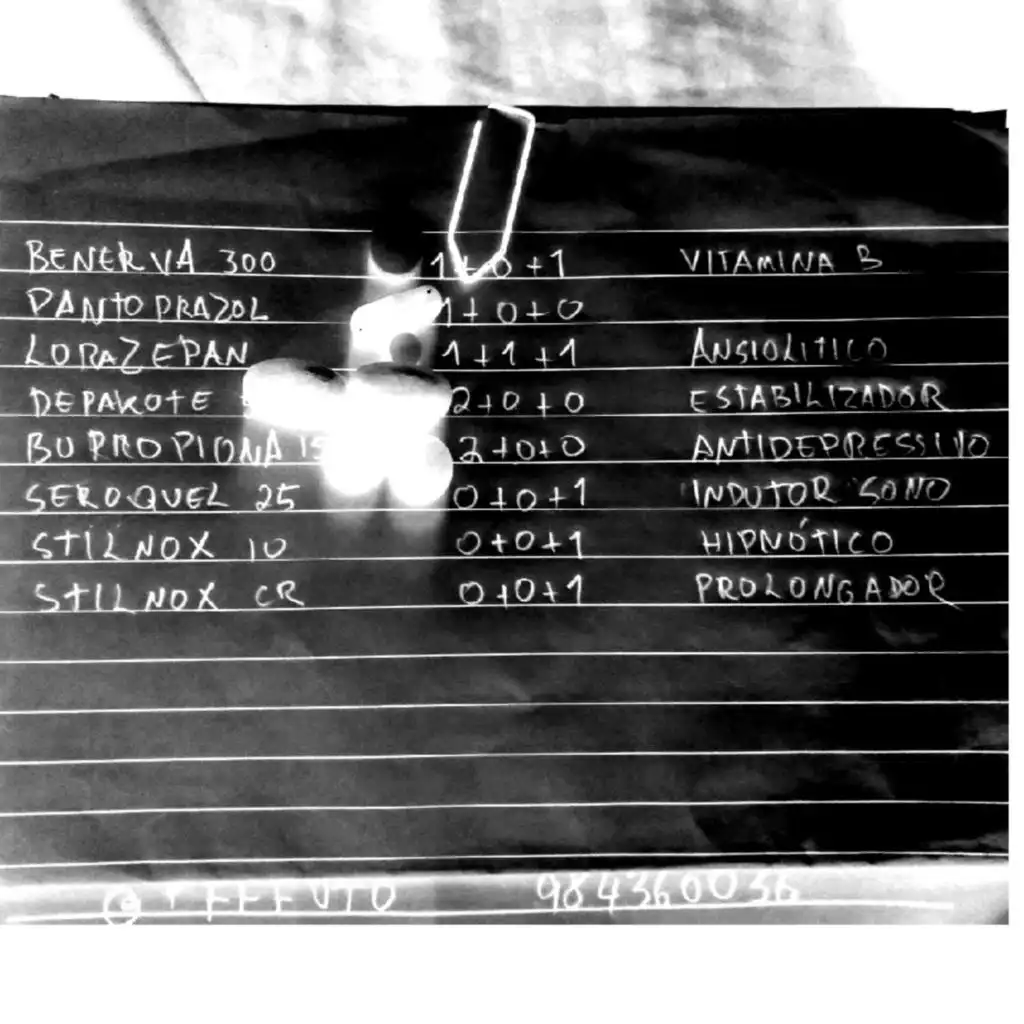 BENERVA 300 1+0+1 VITAMINA B
PANTOPRAZOL 1+0+0
LORAZEPAN 1+1+1 ANSIOLITICO
DEPAKOTE 2+0+0 ESTABILIZADOR
BUPROPIONA 15 2+0+0 ANTIDEPRESSIVO
SEROQUEL 25 0+0+1 INDUTOR SONO
STILNOX 10 0+0+1 HIPNÓTICO
STILNOX CR 0+0+1 PROLONGADOR
984360036